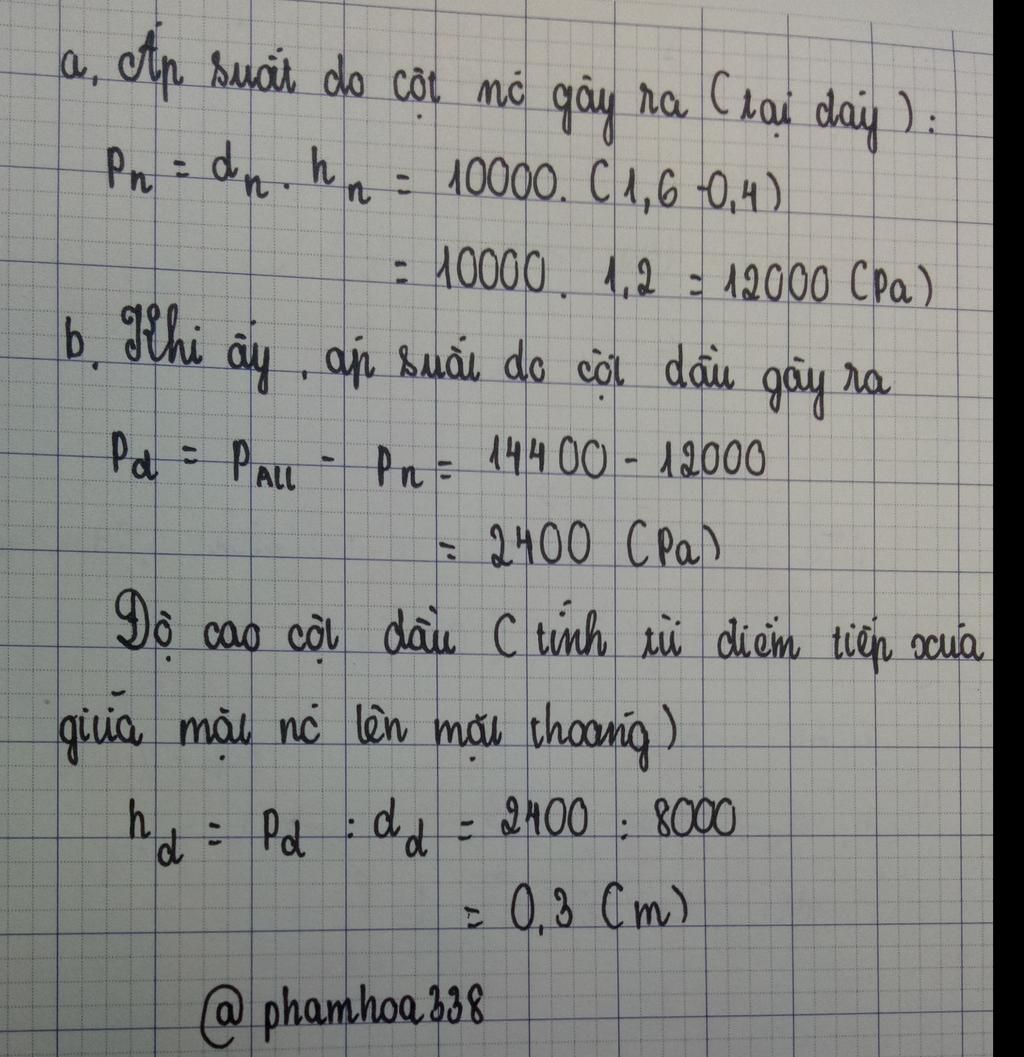 a, Áp suất do cột nc gây ra (tại đáy):
Pn = dn. hn = 10000. (1,6 -0,4)
= 10000. 1,2 = 12000 (Pa)
b. Khi ấy, áp suất do cột dầu gây ra
Pd = PAll - Pn = 14400 - 12000
= 2400 (Pa)
Độ cao cột dầu (tính từ điểm tiếp xúa
giữa mặt nc lên mặt thoáng)
hd = Pd : dd = 2400 : 8000
= 0,3 (m)
@phamhoa338